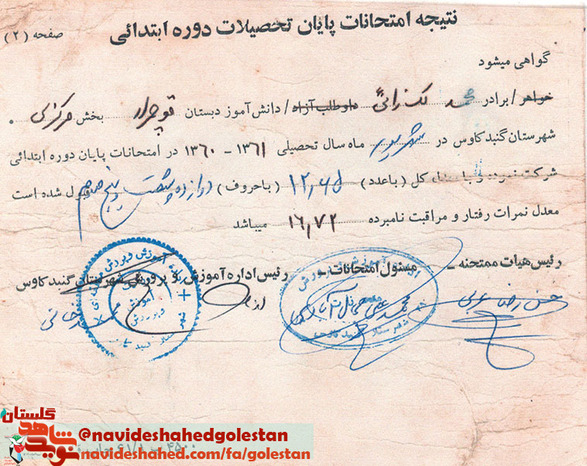 نتیجه امتحانات پایان تحصیلات دوره ابتدائی صفحه (۲)
گواهی میشود
خواهر/برادر محمد داوطلب آزاد/دانش‌آموز دبستان قوچمراد بخش مرکزی
شهرستان گنبدکاوس در شهریور ماه سال تحصیلی ۱۳۶۱ - ۱۳۶۰ در امتحانات پایان دوره ابتدائی
شرکت نموده و با معدل کل (باعدد) ۱۲٫۶۵ (باحروف) دوازده و شصت و پنج صدم قبول شده است
معدل نمرات رفتار و مراقبت نامبرده ۱۶٫۷۲ میباشد
رئیس هیات ممتحنه - مسئول امتحانات - رئیس اداره آموزش و پرورش شهرستان گنبد کاوس
گلستان
نوید شاهد
@navideshahedgolestan
navideshahed.com/fa/golestan